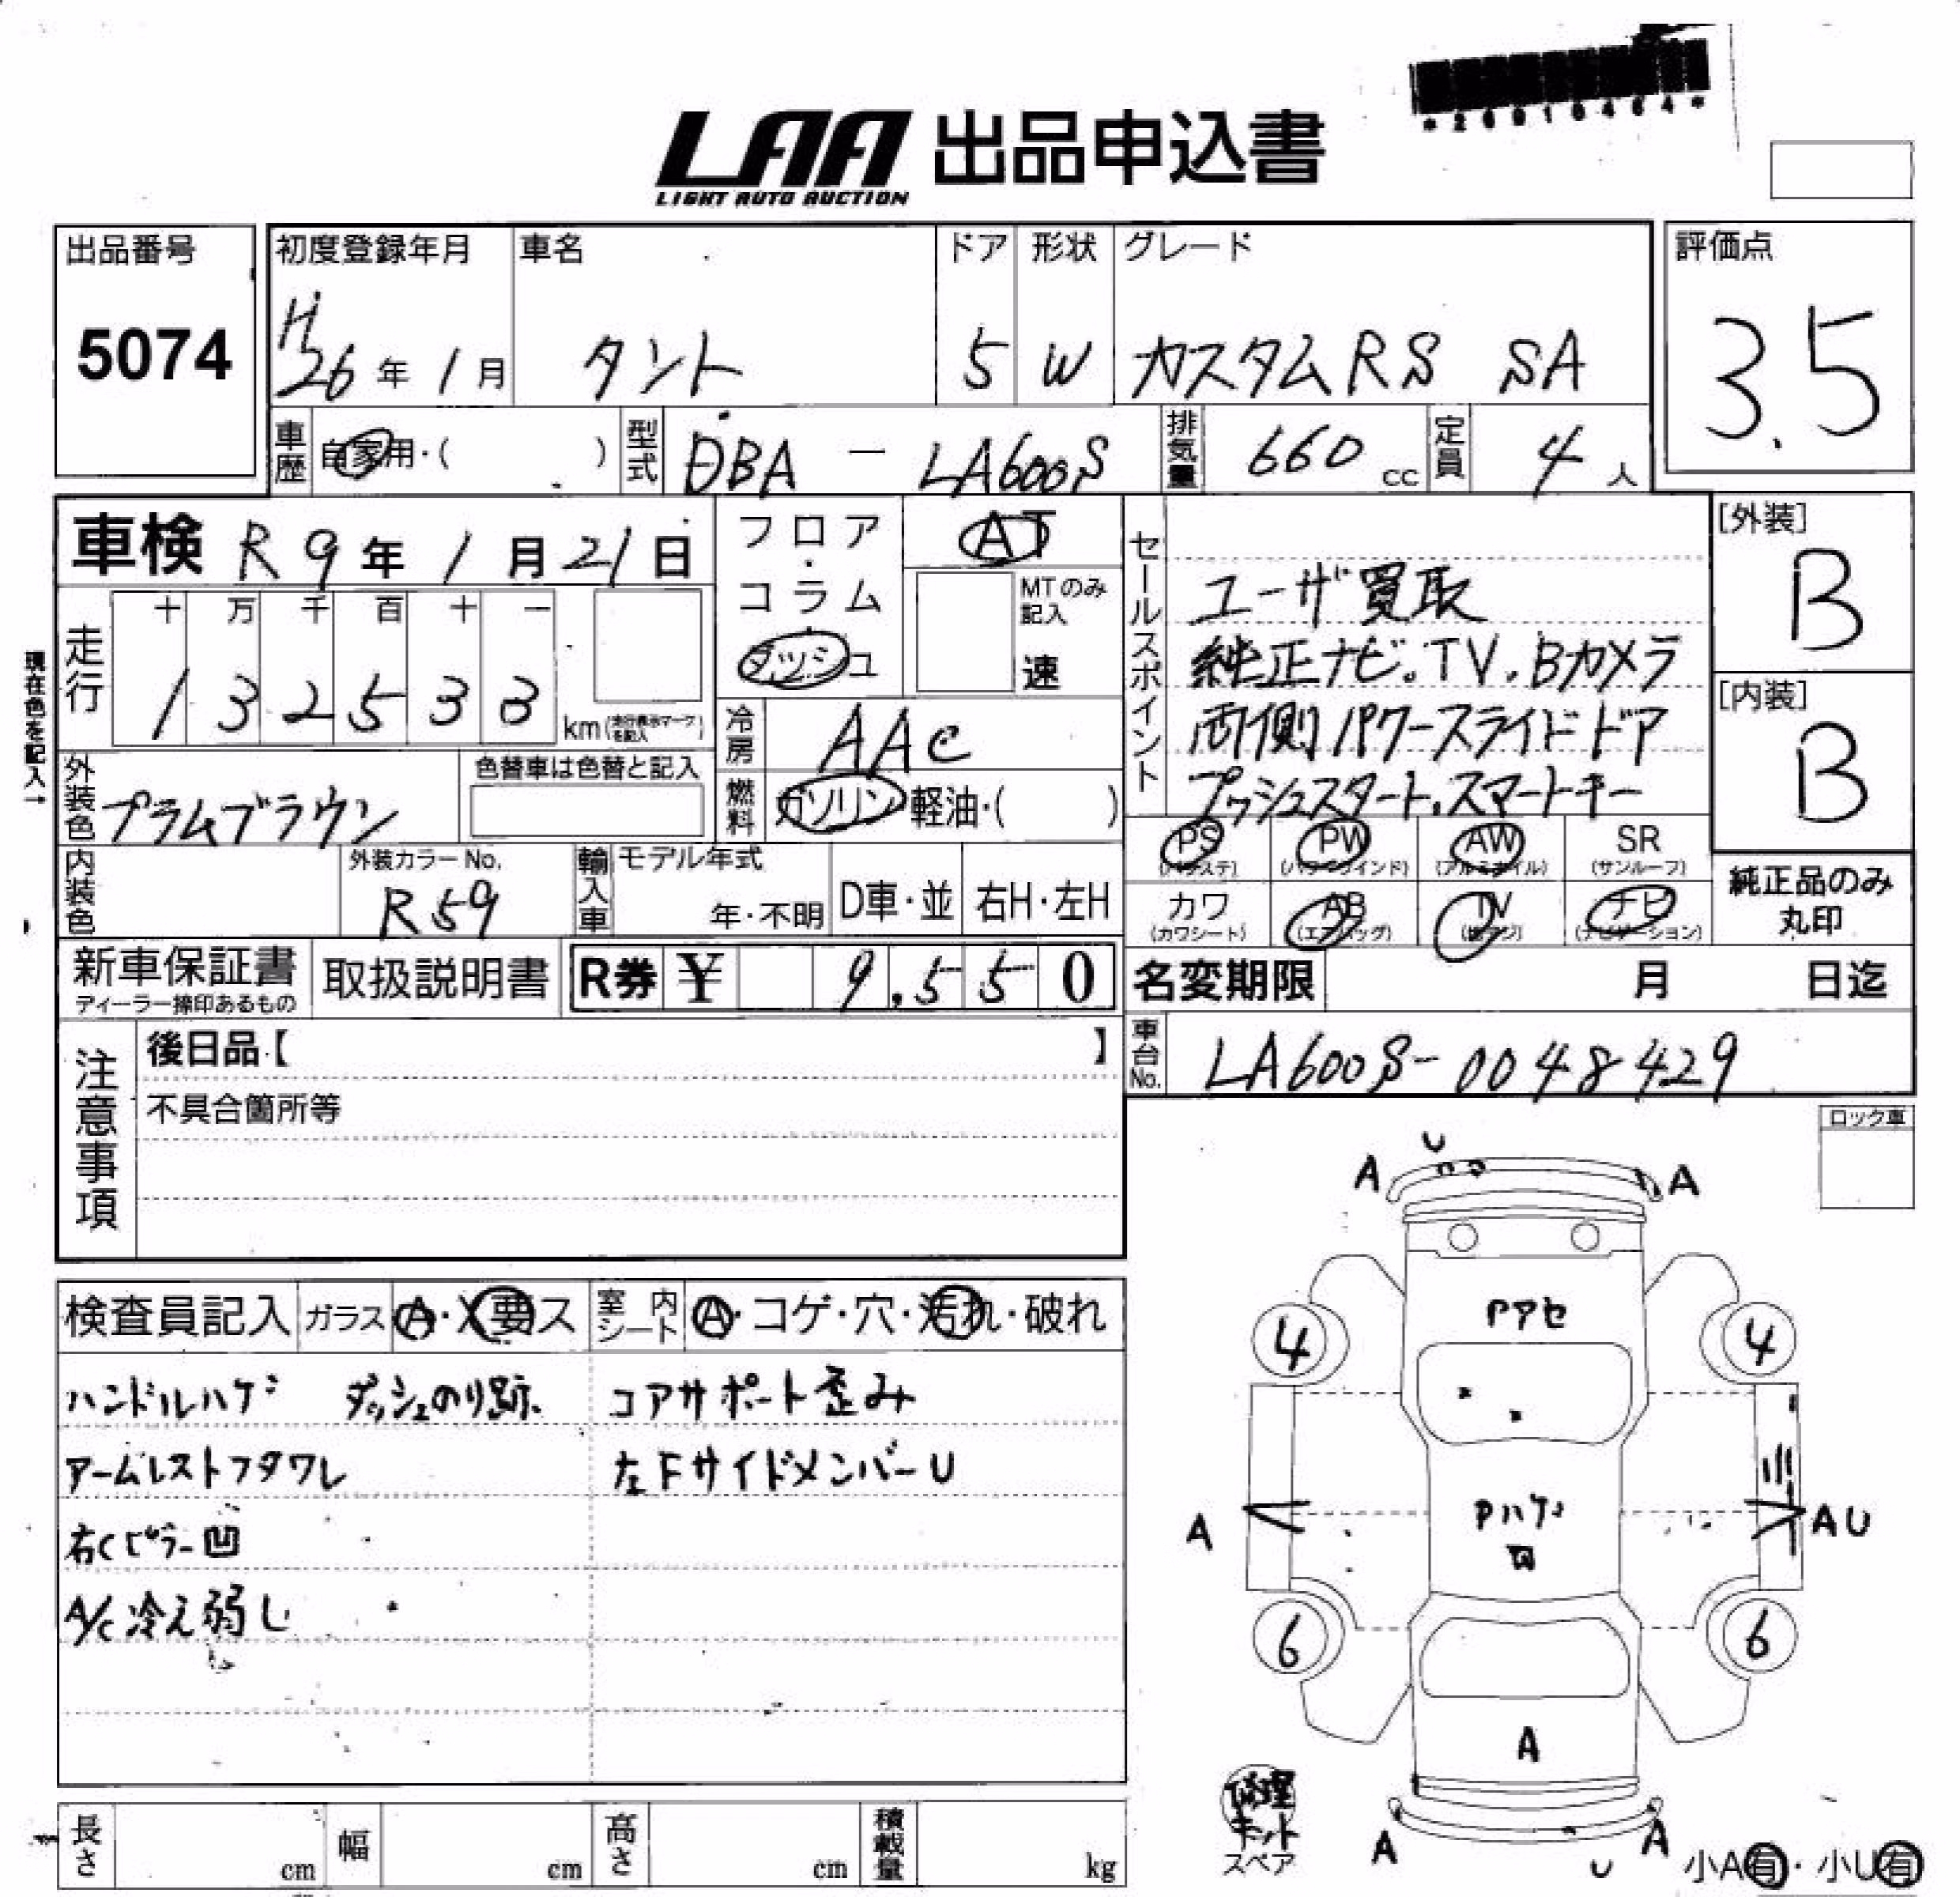 *26010464*
LAA 出品申込書
LIGHT AUTO AUCTION
出品番号
5074
初度登録年月
H26年1月
車名
タント
ドア
5
形状
W
グレード
カスタムRS SA
評価点
3.5
車歴
自家用・( )
型式
DBA - LA600S
排気量
660 cc
定員
4人
車検 R9年1月21日
フロア・コラム
ダッシュ
AT
MTのみ記入
速
現在色を記入→
走行
十 万 千 百 十 一
1 3 2 5 3 3
km(走行表示マークを記入)
冷房
AAC
燃料
ガソリン・軽油・( )
外装色
プラムブラウン
色替車は色替と記入
内装色
外装カラーNo.
R59
輸入車
モデル年式
年・不明
D車・並
右H・左H
セールスポイント
ユーザ買取
純正ナビ.TV.Bカメラ
両側パワースライドドア
プッシュスタート.スマートキー
[外装]
B
[内装]
B
PS
(パワステ)
PW
(パワーウインド)
AW
(アルミホイル)
SR
(サンルーフ)
カワ
(カワシート)
AB
(エアバッグ)
TV
ナビ
(ナビゲーション)
純正品のみ
丸印
新車保証書
ディーラー捺印あるもの
取扱説明書
R券 ¥ 9.550
名変期限 月 日迄
車台No.
LA600S-0048429
注意事項
後日品【 】
不具合箇所等
ロック車
検査員記入
ガラス
A・X要ス
室内シート
A・コゲ・穴・汚れ・破れ
ハンドルハゲ ダッシュのり跡.
コアサポート歪み
アームレストフタワレ
左FサイドメンバーU
右Cピラー凹
A/C冷え弱し
U
A
A
Pアセ
4
4
A
Pハゲ
凹
AU
6
6
A
A
U
A
修理
キット
スペア
小A有・小U有
長さ cm
幅 cm
高さ cm
積載量 kg